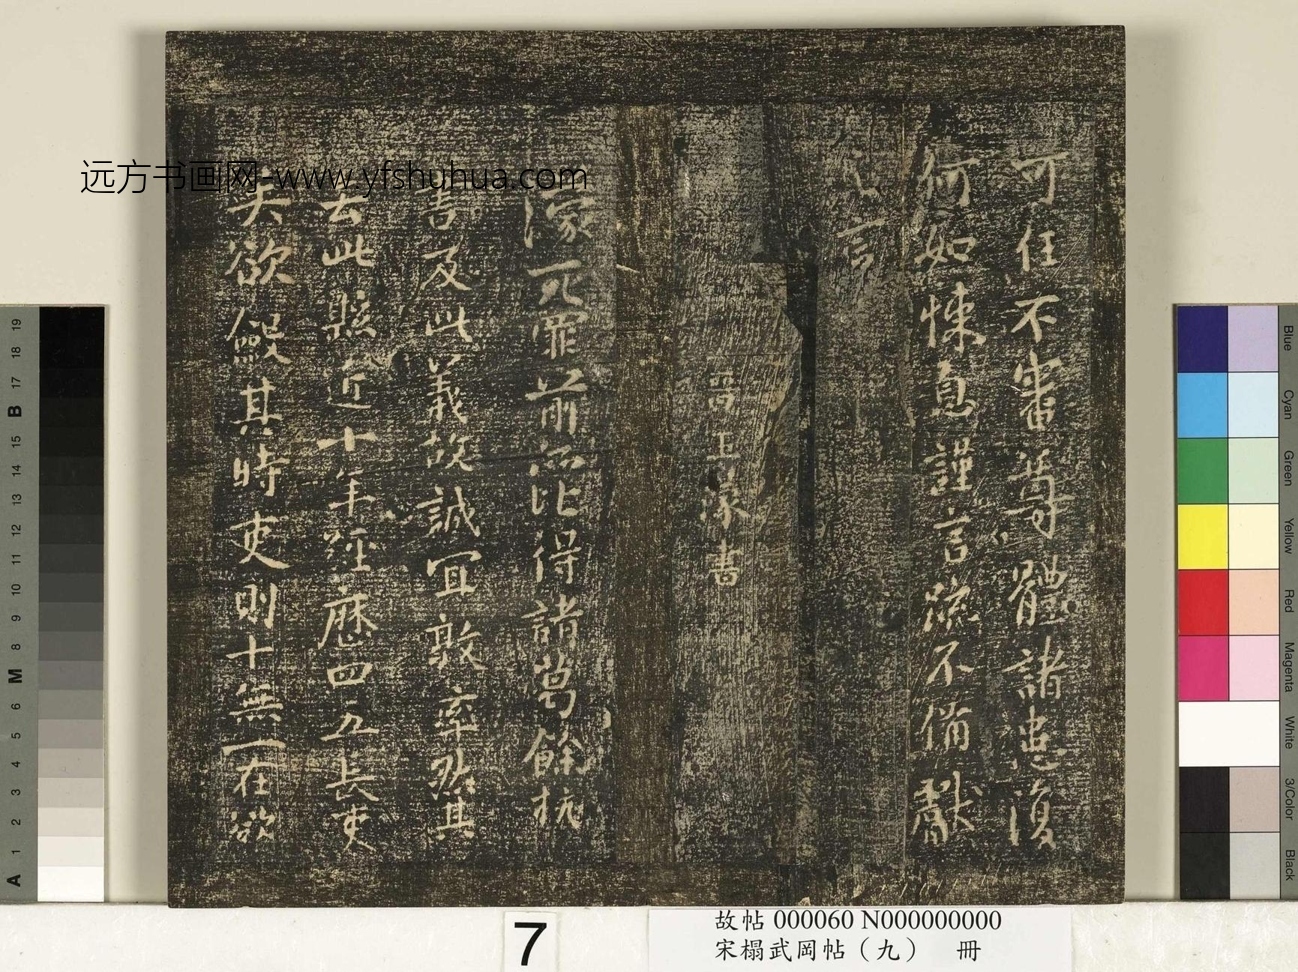 可任不審尊體諸恙復
何如悚息謹言疏不備獻
之言
晉王濛書
濛死罪前比得諸葛餘杭
書及此義故誠宜敦率然其
去此縣近十年經歷四五長吏
夫欲假其時吏則十無一在欲
远方书画网-www.yfshuhua.com
19
18
17
B
15
14
13
12
11
10
9
8
7
M
6
5
4
3
2
1
A
Blue
Cyan
Green
Yellow
Red
Magenta
White
3/Color
Black
7
故帖 000060 N000000000
宋榻武岡帖（九） 冊